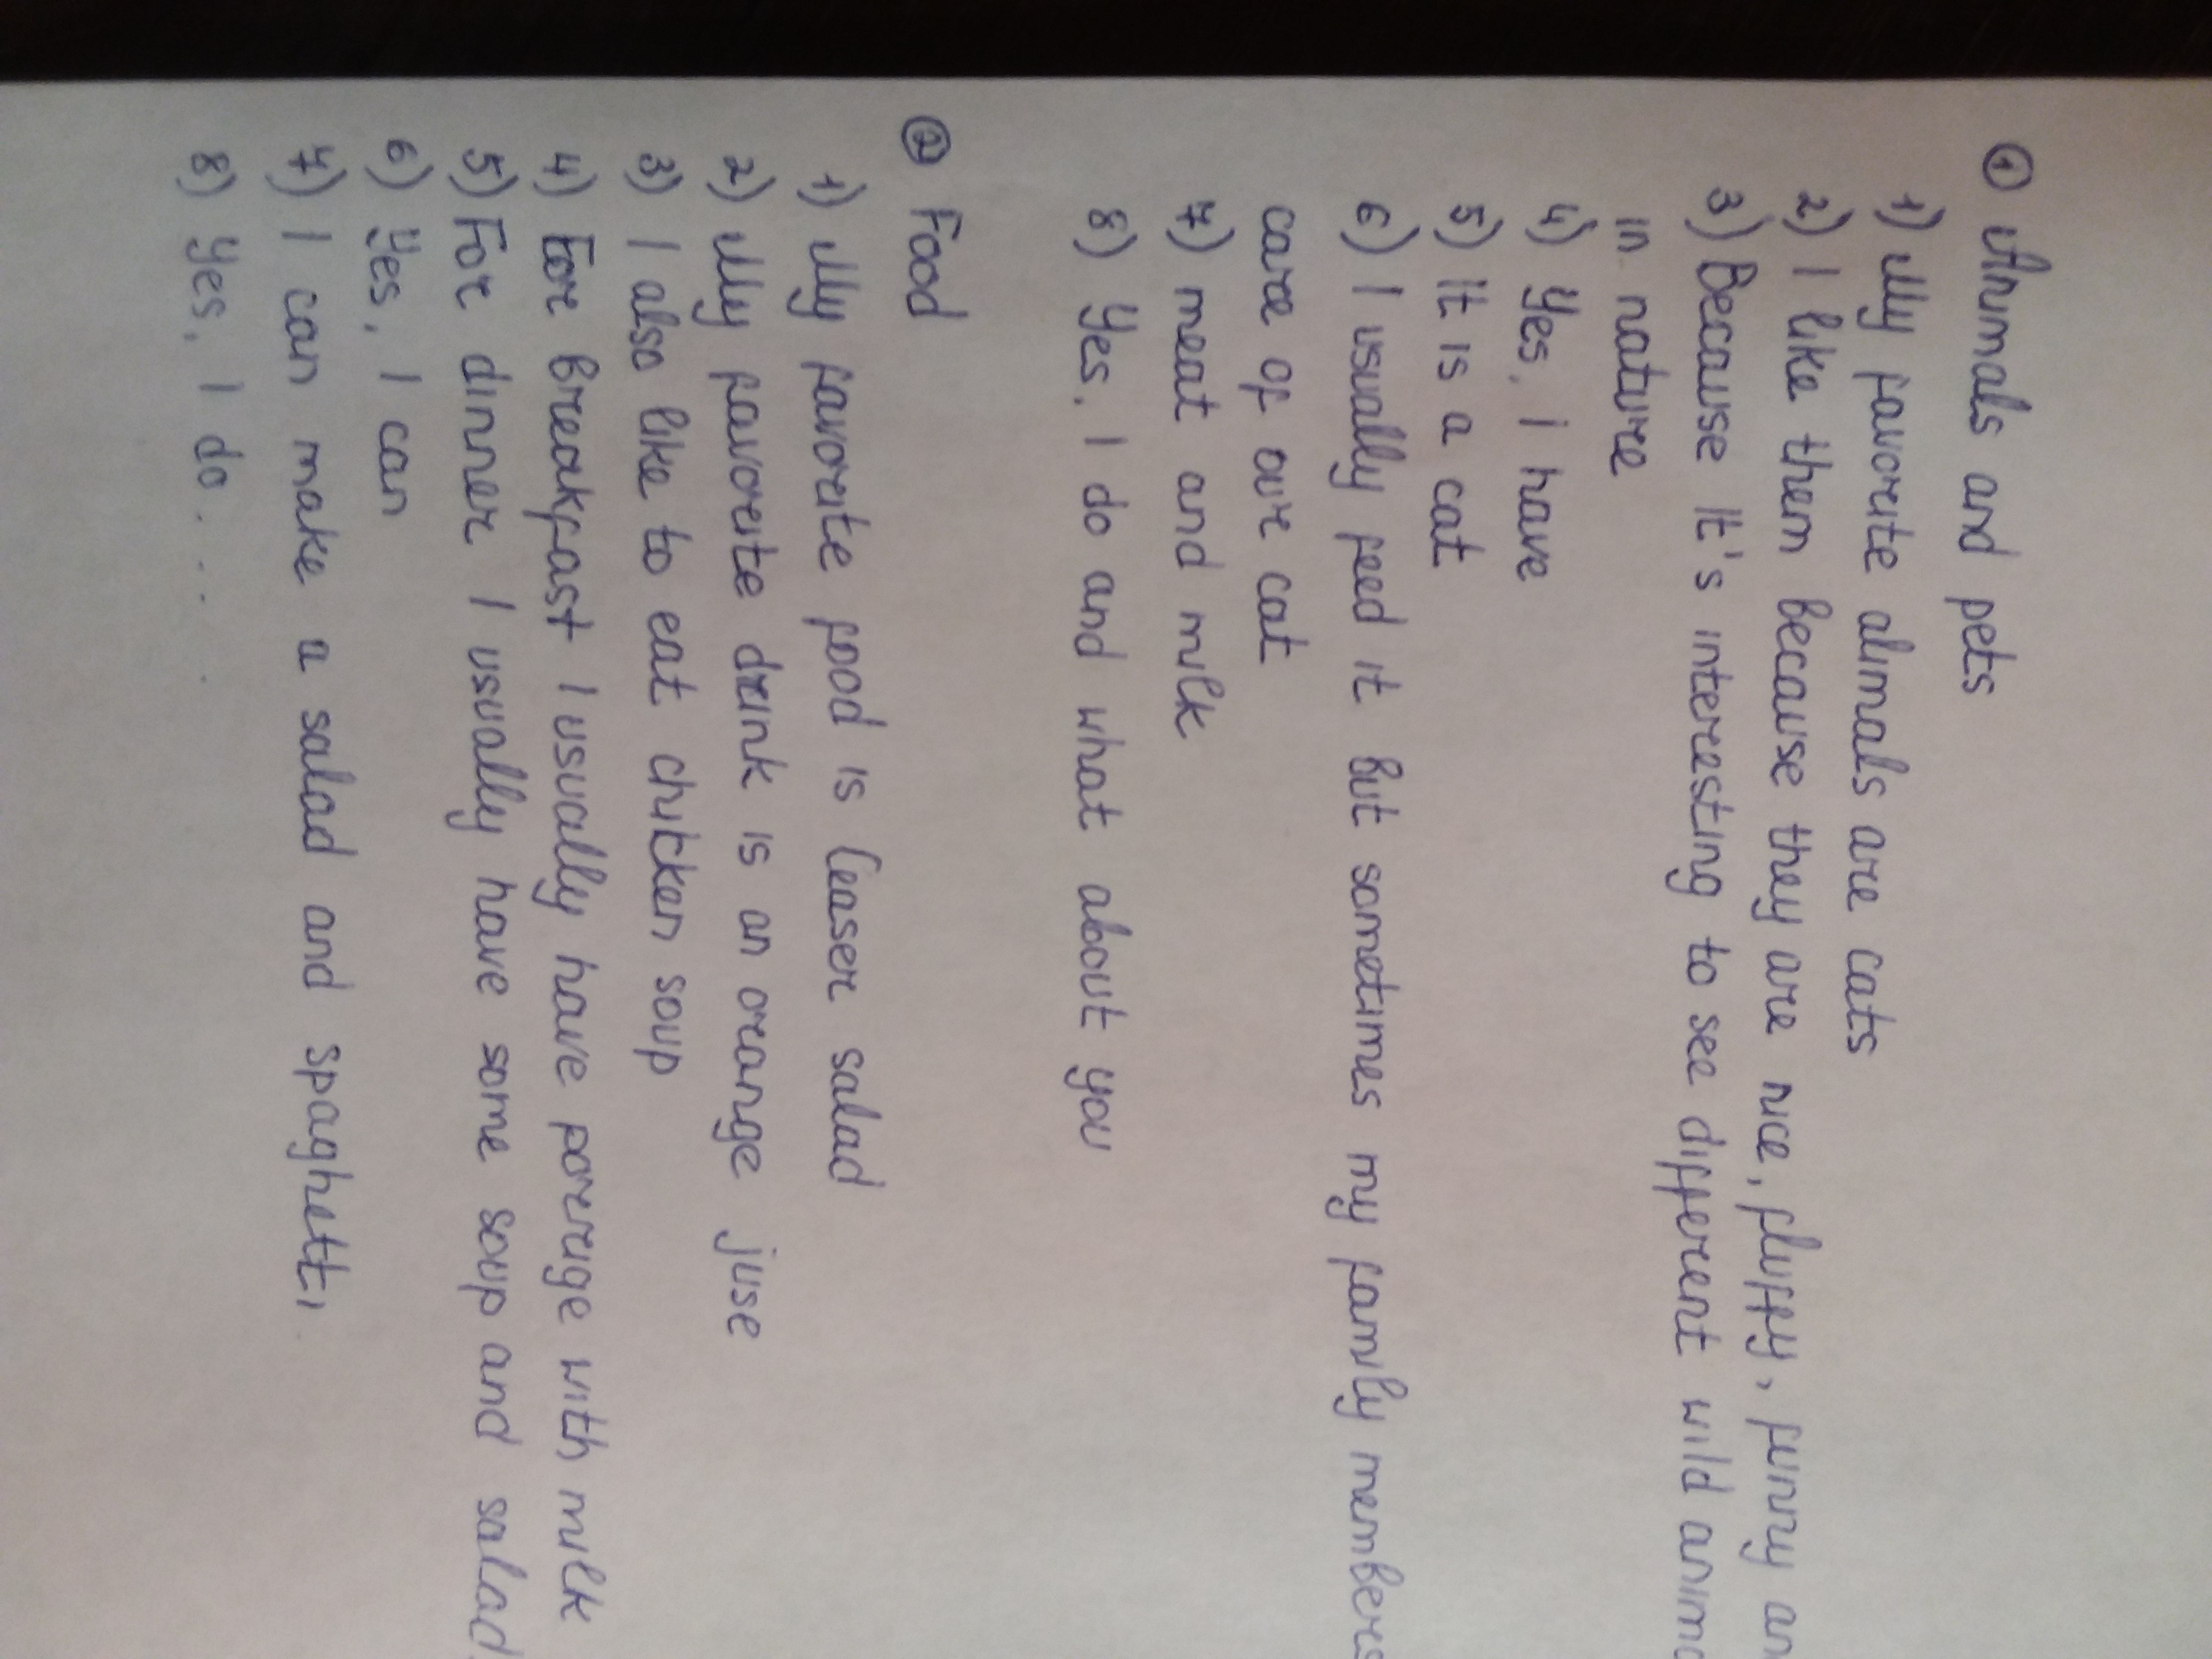 ① Animals and pets
1) My favorite alimals are cats
2) I like them because they are nice, fluffy, funny
3) Because it's interesting to see different wild
in nature
4) Yes, I have
5) It is a cat
6) I usually feed it but sometimes my family members
care of our cat
7) meat and milk
8) Yes, I do and what about you
② Food
1) My favorite food is Ceaser salad
2) My favoreite drink is an orange juse
3) I also like to eat chicken soup
4) For breakfast I usually have porerige with milk
5) For dinner I usually have some soup and salad
6) Yes, I can
7) I can make a salad and spaghetti
8) Yes, I do...